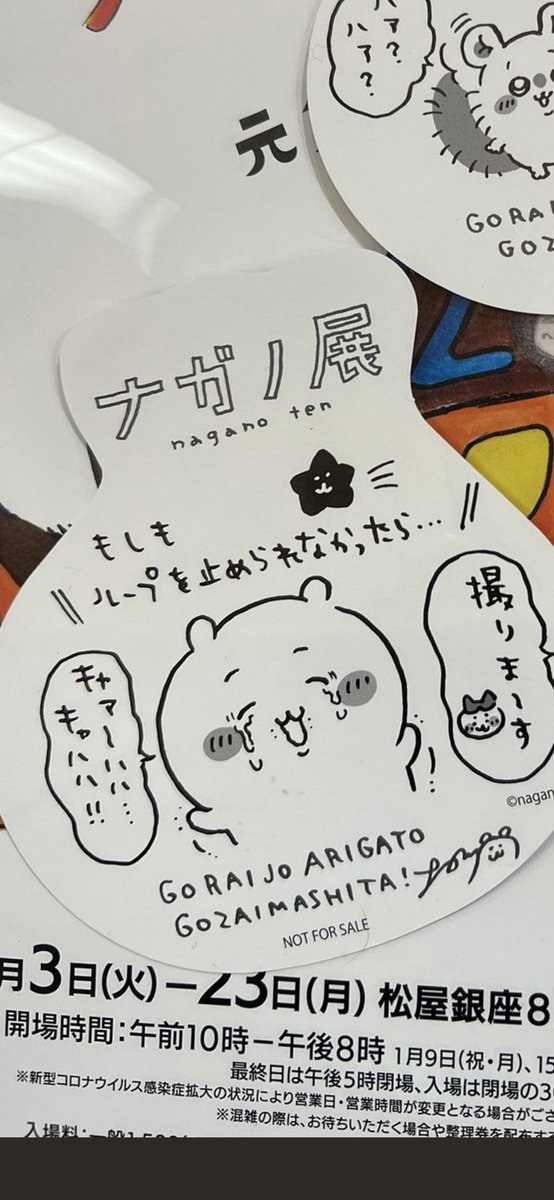 ハァ?
ハァ?
元
GORAI
GOZ
ナガノ展
nagano ten
もしも
ループを止められなかったら…
撮りまーす
キャァーハハ…
キャハハ!!
©nagan
GORAIJO ARIGATO
GOZAIMASHITA!
NOT FOR SALE
月3日(火)ー23日(月) 松屋銀座8
開場時間:午前10時ー午後8時 1月9日(祝・月)、15
最終日は午後5時閉場、入場は閉場の30
※新型コロナウイルス感染症拡大の状況により営業日・営業時間が変更となる場合がござ
※混雑の際は、お待ちいただく場合や整理券を配布する
入場料:一般1,500